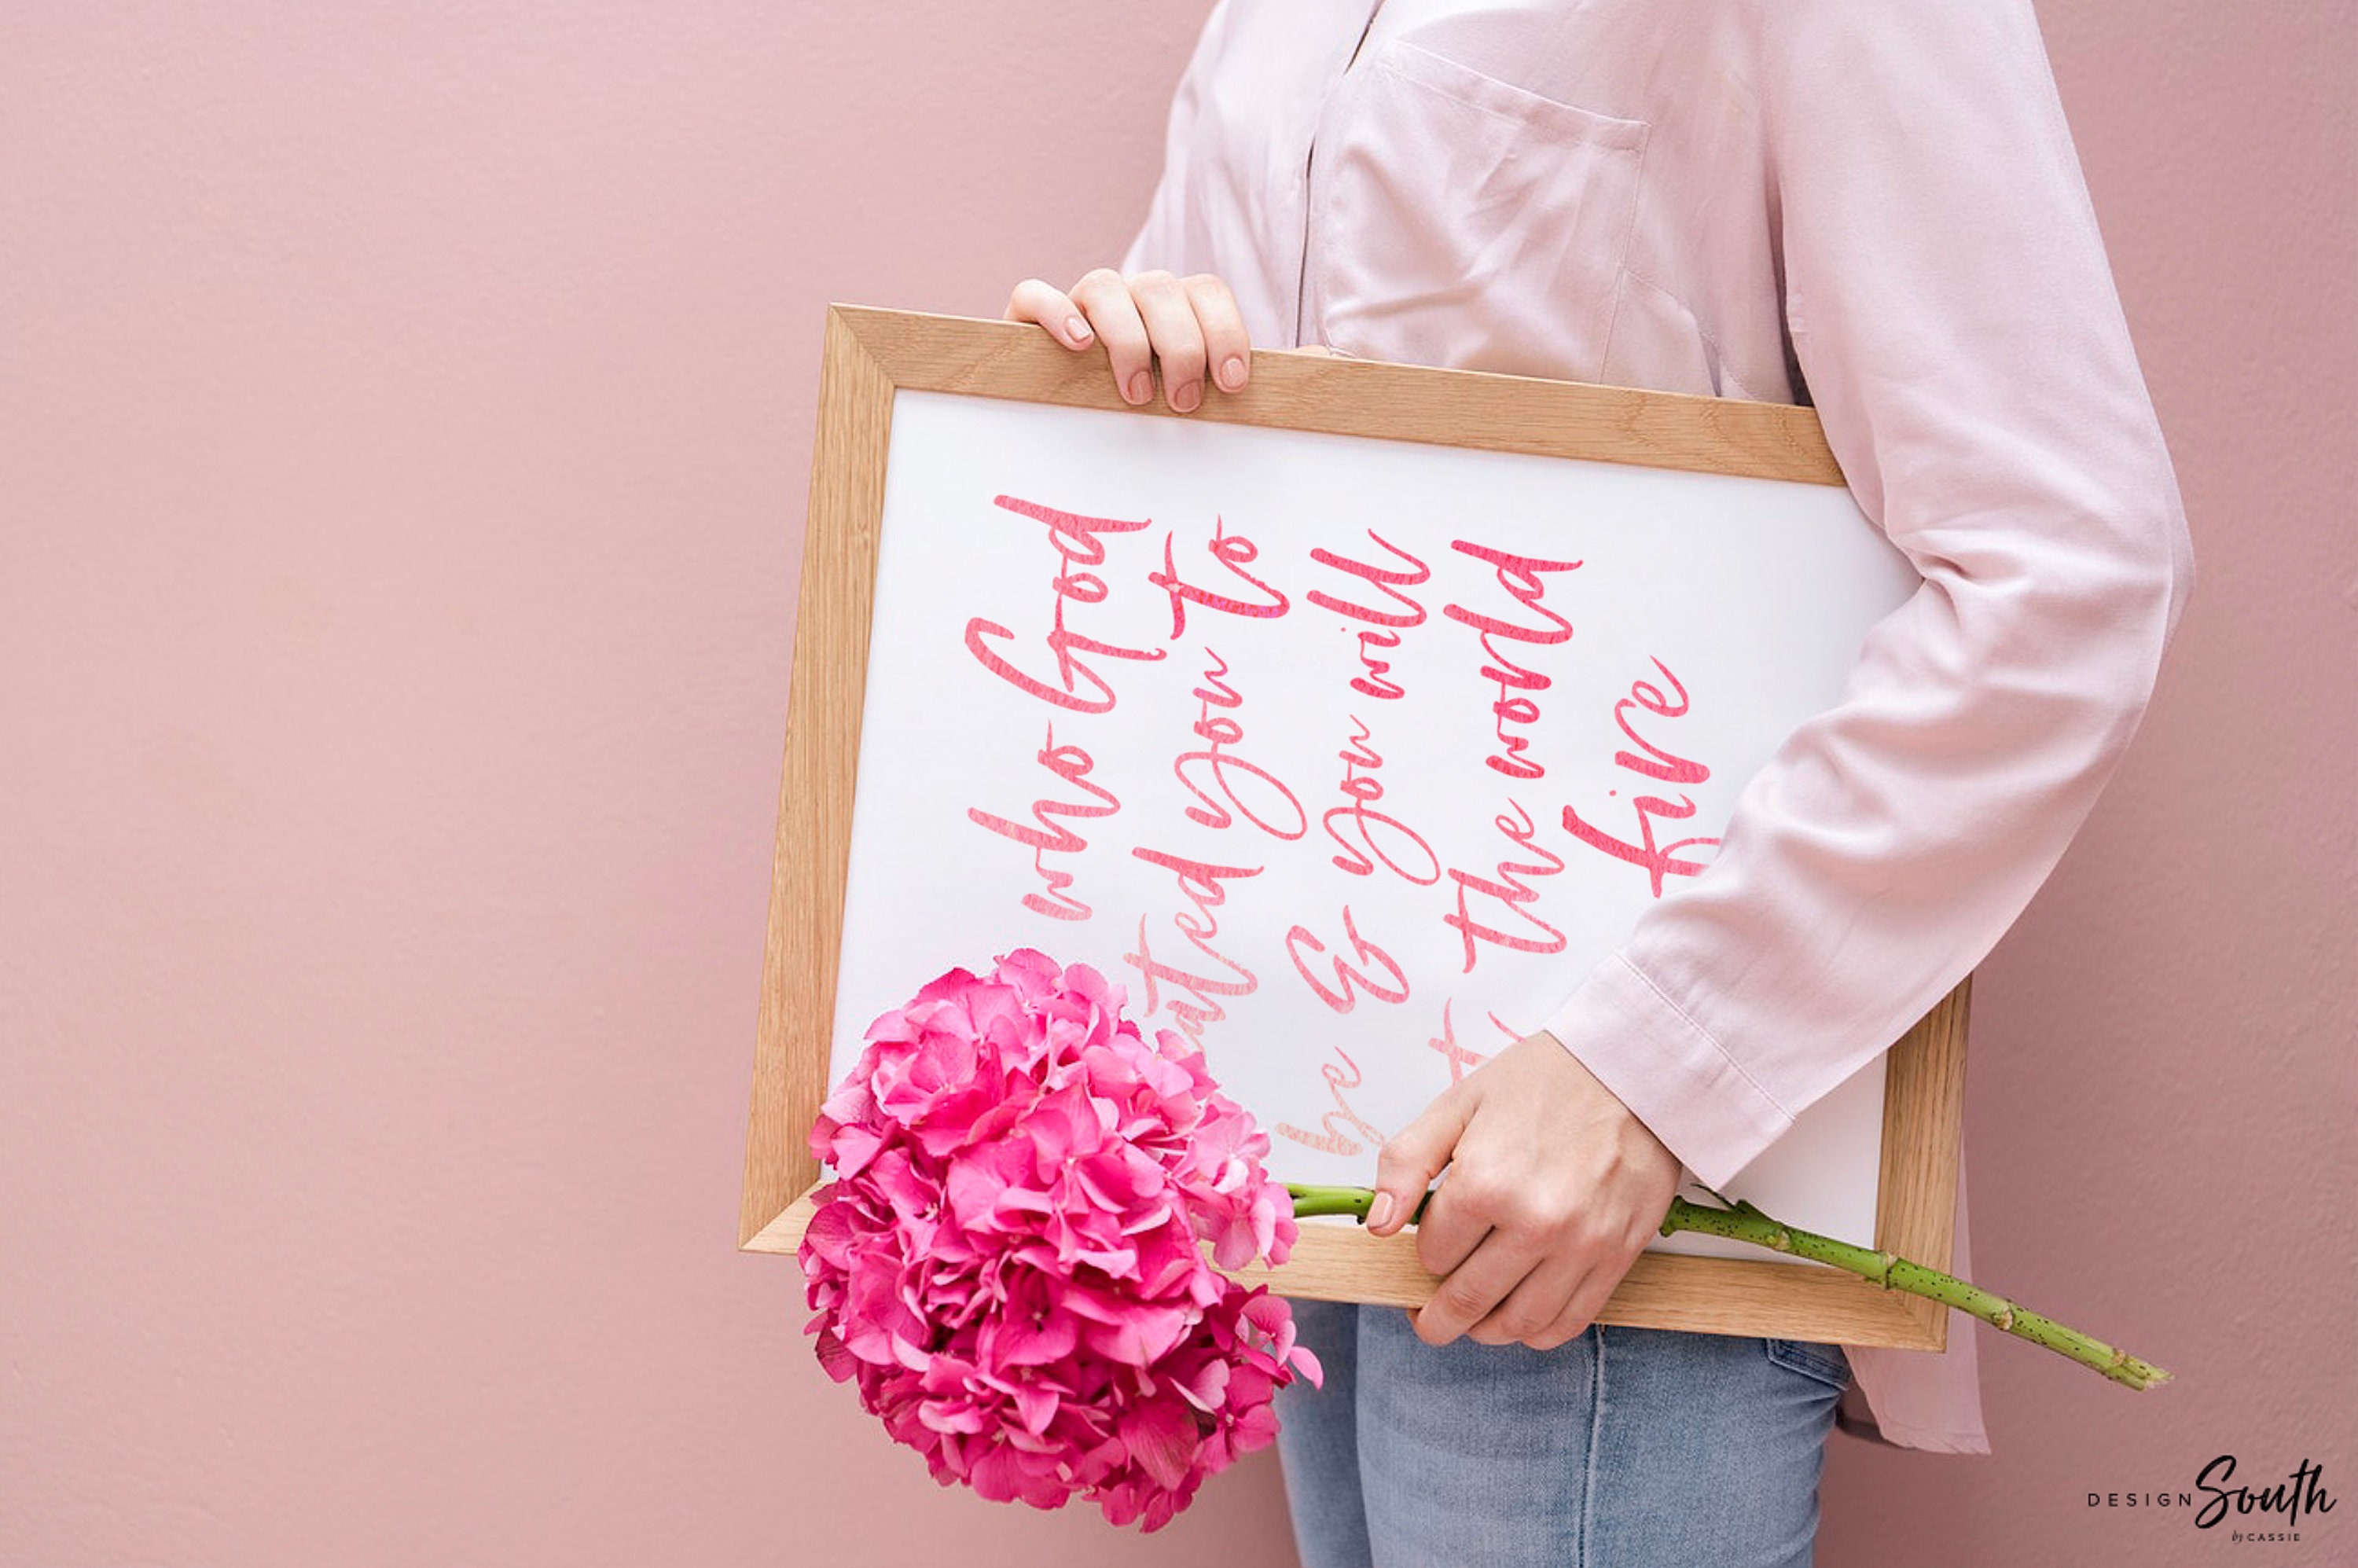 who God
ated you to
be & you will
t the world
fire
DESIGN South
by CASSIE